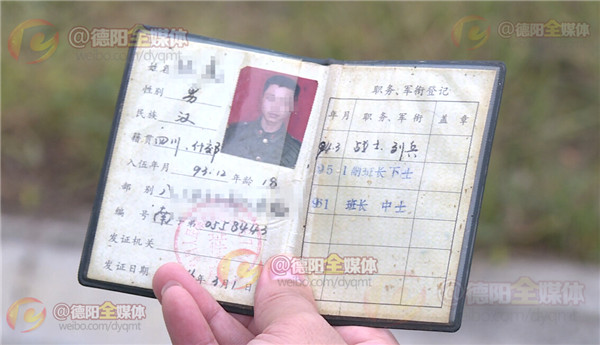 @德阳全媒体
weibo.com/dyqmt
@德阳全媒体
weibo.com/dyqmt
姓名
性别 男
民族 汉
籍贯 四川、什邡
入伍年月 93.12 年龄 18
部别
编号 南 字第 0558443
发证机关
发证日期 年 3月1日
职务、军衔登记
年月 职务、军衔 盖章
94.3 战士、列兵
95.1 副班长下士
96.1 班长 中士
@德阳全媒体
weibo.com/dyqmt
@德阳全媒体
weibo.com/dyqmt
@德阳全媒体
weibo.com/dyqmt